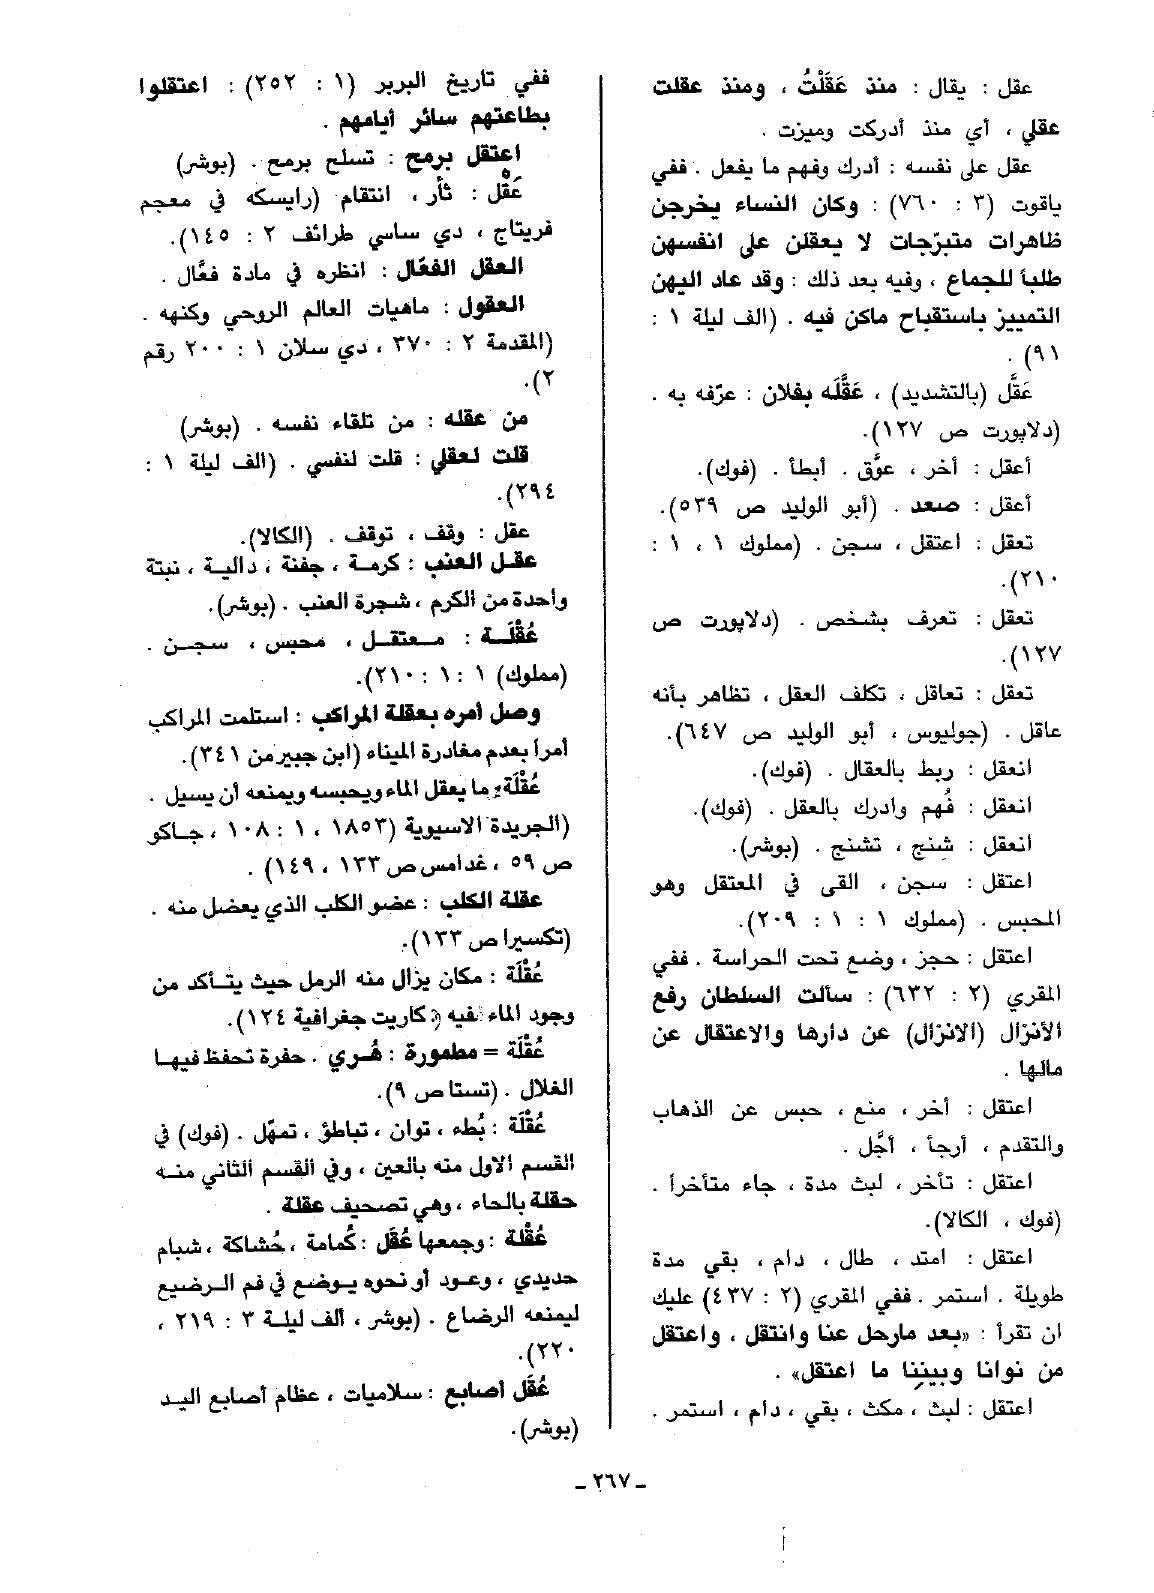 عقل : يقال : منذ عَقَلْتُ ، ومنذ عقلت
عقلي ، أي منذ أدركت وميزت .
عقل على نفسه : أدرك وفهم ما يفعل . ففي
ياقوت (٣ : ٧٦٠) : وكان النساء يخرجن
ظاهرات متبرّجات لا يعقلن على انفسهن
طلباً للجماع ، وفيه بعد ذلك : وقد عاد اليهن
التمييز باستقباح ماكن فيه . (الف ليلة ١ :
٩١) .
عَقَّل (بالتشديد) ، عَقَّلَه بفلان : عرّفه به .
(دلاپورت ص ١٢٧).
أعقل : أخر ، عوَّق . أبطأ . (فوك).
أعقل : صعد . (أبو الوليد ص ٥٣٩).
تعقل : اعتقل ، سجن . (مملوك ١ ، ١ :
٢١٠).
تعقل : تعرف بشخص . (دلاپورت ص
١٢٧).
تعقل : تعاقل ، تكلف العقل ، تظاهر بأنه
عاقل . (جوليوس ، أبو الوليد ص ٦٤٧).
انعقل : ربط بالعقال . (فوك).
انعقل : فُهم وادرك بالعقل . (فوك).
انعقل : شنج ، تشنج . (بوشر).
اعتقل : سجن ، القى في المعتقل وهو
المحبس . (مملوك ١ : ١ : ٢٠٩).
اعتقل : حجز ، وضع تحت الحراسة . ففي
المقري (٢ : ٦٣٢) : سألت السلطان رفع
الأنزال (الانزال) عن دارها والاعتقال عن
مالها .
اعتقل : أخر ، منع ، حبس عن الذهاب
والتقدم ، أرجأ ، أجَّل .
اعتقل : تأخر ، لبث مدة ، جاء متأخراً .
(فوك ، الكالا).
اعتقل : امتد ، طال ، دام ، بقي مدة
طويلة . استمر . ففي المقري (٢ : ٤٣٧) عليك
ان تقرأ : «بعد مارحل عنا وانتقل ، واعتقل
من نوانا وبيننا ما اعتقل» .
اعتقل : لبث ، مكث ، بقي ، دام ، استمر .
ففي تاريخ البربر (١ : ٢٥٢) : اعتقلوا
بطاعتهم سائر أيامهم .
اعتقل برمح : تسلح برمح . (بوشر)
عَقْل : ثأر ، انتقام (رايسكه في معجم
فريتاج ، دي ساسي طرائف ٢ : ١٤٥).
العقل الفعّال : انظره في مادة فعَّال .
العقول : ماهيات العالم الروحي وكنهه .
(المقدمة ٢ : ٣٧٠ ، دي سلان ١ : ٢٠٠ رقم
٢).
من عقله : من تلقاء نفسه . (بوشر)
قلت لعقلي : قلت لنفسي . (الف ليلة ١ :
٢٩٤).
عقل : وقف ، توقف . (الكالا).
عقل العنب : كرمة ، جفنة ، دالية ، نبتة
واحدة من الكرم ، شجرة العنب . (بوشر).
عُقْلَة : معتقل ، محبس ، سجن .
(مملوك) ١ : ١ : ٢١٠).
وصل أمره بعقلة المراكب : استلمت المراكب
أمراً بعدم مغادرة الميناء (ابن جبير من ٣٤١).
عُقْلَة : ما يعقل الماء ويحبسه ويمنعه أن يسيل .
(الجريدة الاسيوية (١٨٥٣ ، ١ : ١٠٨ ، جاكو
ص ٥٩ ، غدامس ص ١٣٣ ، ١٤٩) .
عقلة الكلب : عضو الكلب الذي يعضل منه .
(تكسيرا ص ١٣٣).
عُقْلَة : مكان يزال منه الرمل حيث يتأكد من
وجود الماء فيه (كاريت جغرافية ١٢٤).
عُقْلَة = مطمورة : هُري . حفرة تحفظ فيها
الغلال . (تستا ص ٩).
عُقْلَة : بُطء ، توان ، تباطؤ ، تمهّل . (فوك) في
القسم الاول منه بالعين ، وفي القسم الثاني منه
حقلة بالحاء ، وهي تصحيف عقلة .
عُقْلة : وجمعها عُقَل : كُمامة ، خُشاكة ، شبام
حديدي ، وعود أو نحوه يوضع في فم الرضيع
ليمنعه الرضاع . (بوشر ، ألف ليلة ٣ : ٢١٩ ،
٢٢٠).
عُقَل أصابع : سلاميات ، عظام أصابع اليد
(بوشر).
ـ ٢٦٧ ـ